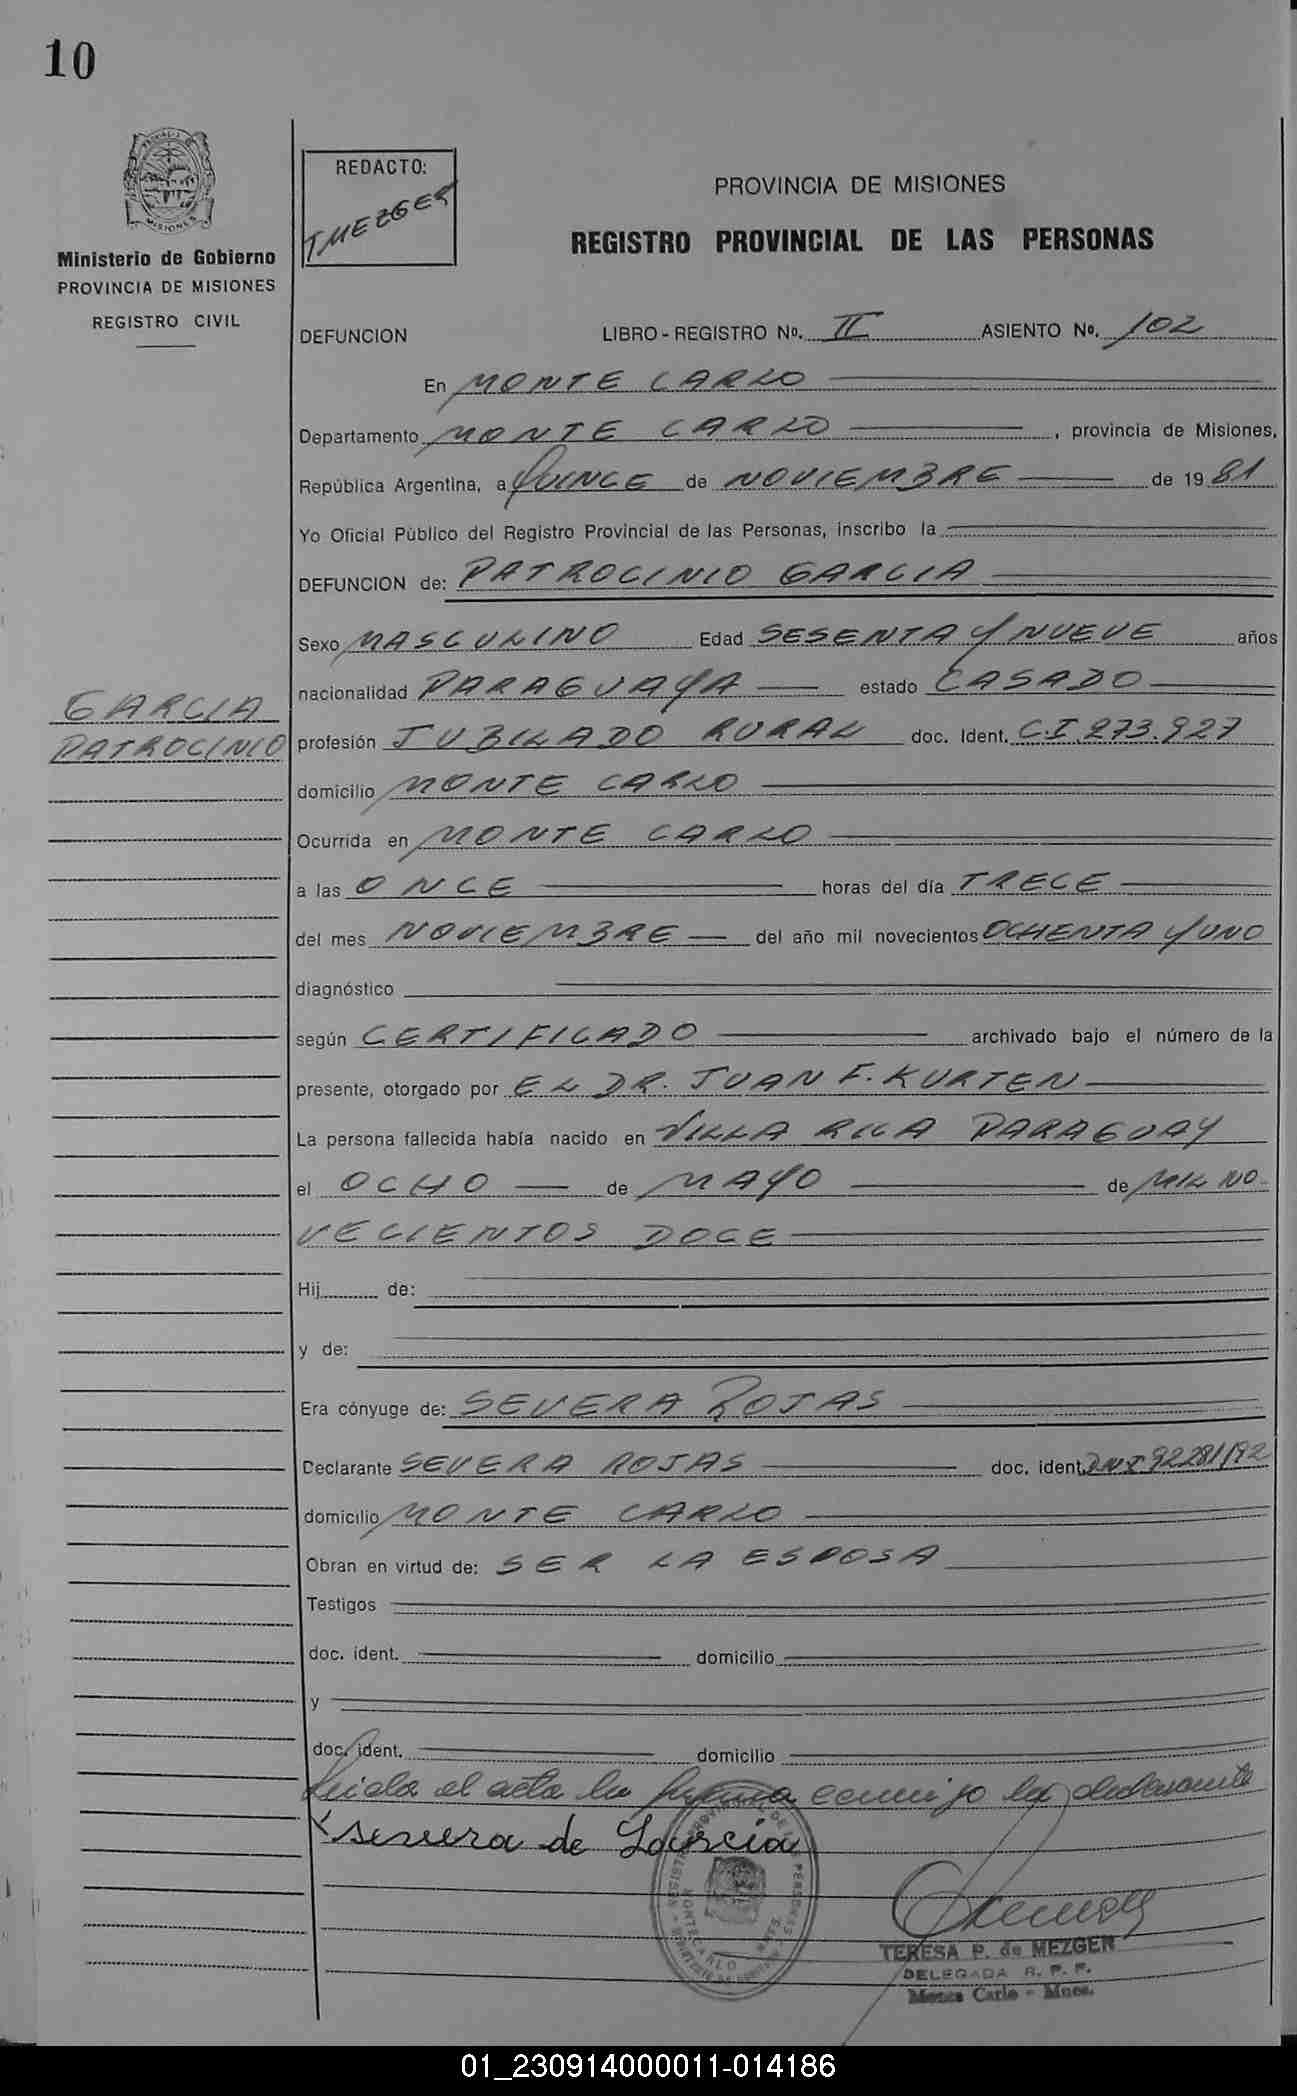 10
PROVINCIA DE MISIONES
REGISTRO PROVINCIAL DE LAS PERSONAS
Ministerio de Gobierno
PROVINCIA DE MISIONES
REGISTRO CIVIL
REDACTO:
T MEZGER
DEFUNCION LIBRO - REGISTRO Nº. II ASIENTO Nº. 102
En MONTE CARLO
Departamento MONTE CARLO , provincia de Misiones,
República Argentina, a QUINCE de NOVIEMBRE de 19 81
Yo Oficial Público del Registro Provincial de las Personas, inscribo la
DEFUNCION de: PATROCINIO GARCIA
Sexo MASCULINO Edad SESENTA Y NUEVE años
GARCIA
PATROCINIO
nacionalidad PARAGUAYA estado CASADO
profesión JUBILADO RURAL doc. Ident. C.I. 273.927
domicilio MONTE CARLO
Ocurrida en MONTE CARLO
a las ONCE horas del día TRECE
del mes NOVIEMBRE del año mil novecientos OCHENTA Y UNO
diagnóstico
según CERTIFICADO archivado bajo el número de la
presente, otorgado por EL DR. JUAN F. KURTEN
La persona fallecida había nacido en VILLA RICA PARAGUAY
el OCHO de MAYO de MIL NO-
VECIENTOS DOCE
Hij de:
y de:
Era cónyuge de: SEVERA ROJAS
Declarante SEVERA ROJAS doc. ident. DNI
domicilio MONTE CARLO
Obran en virtud de: SER LA ESPOSA
Testigos
doc. ident. domicilio
y
doc. ident. domicilio
Leida el acta la firma conmigo la declarante
severa de Garcia
REGISTRO PROVINCIAL DE LAS PERSONAS
MONTECARLO
TERESA P. de MEZGER
DELEGADA R. P. P.
Monte Carlo - Mnes.
01_230914000011-014186